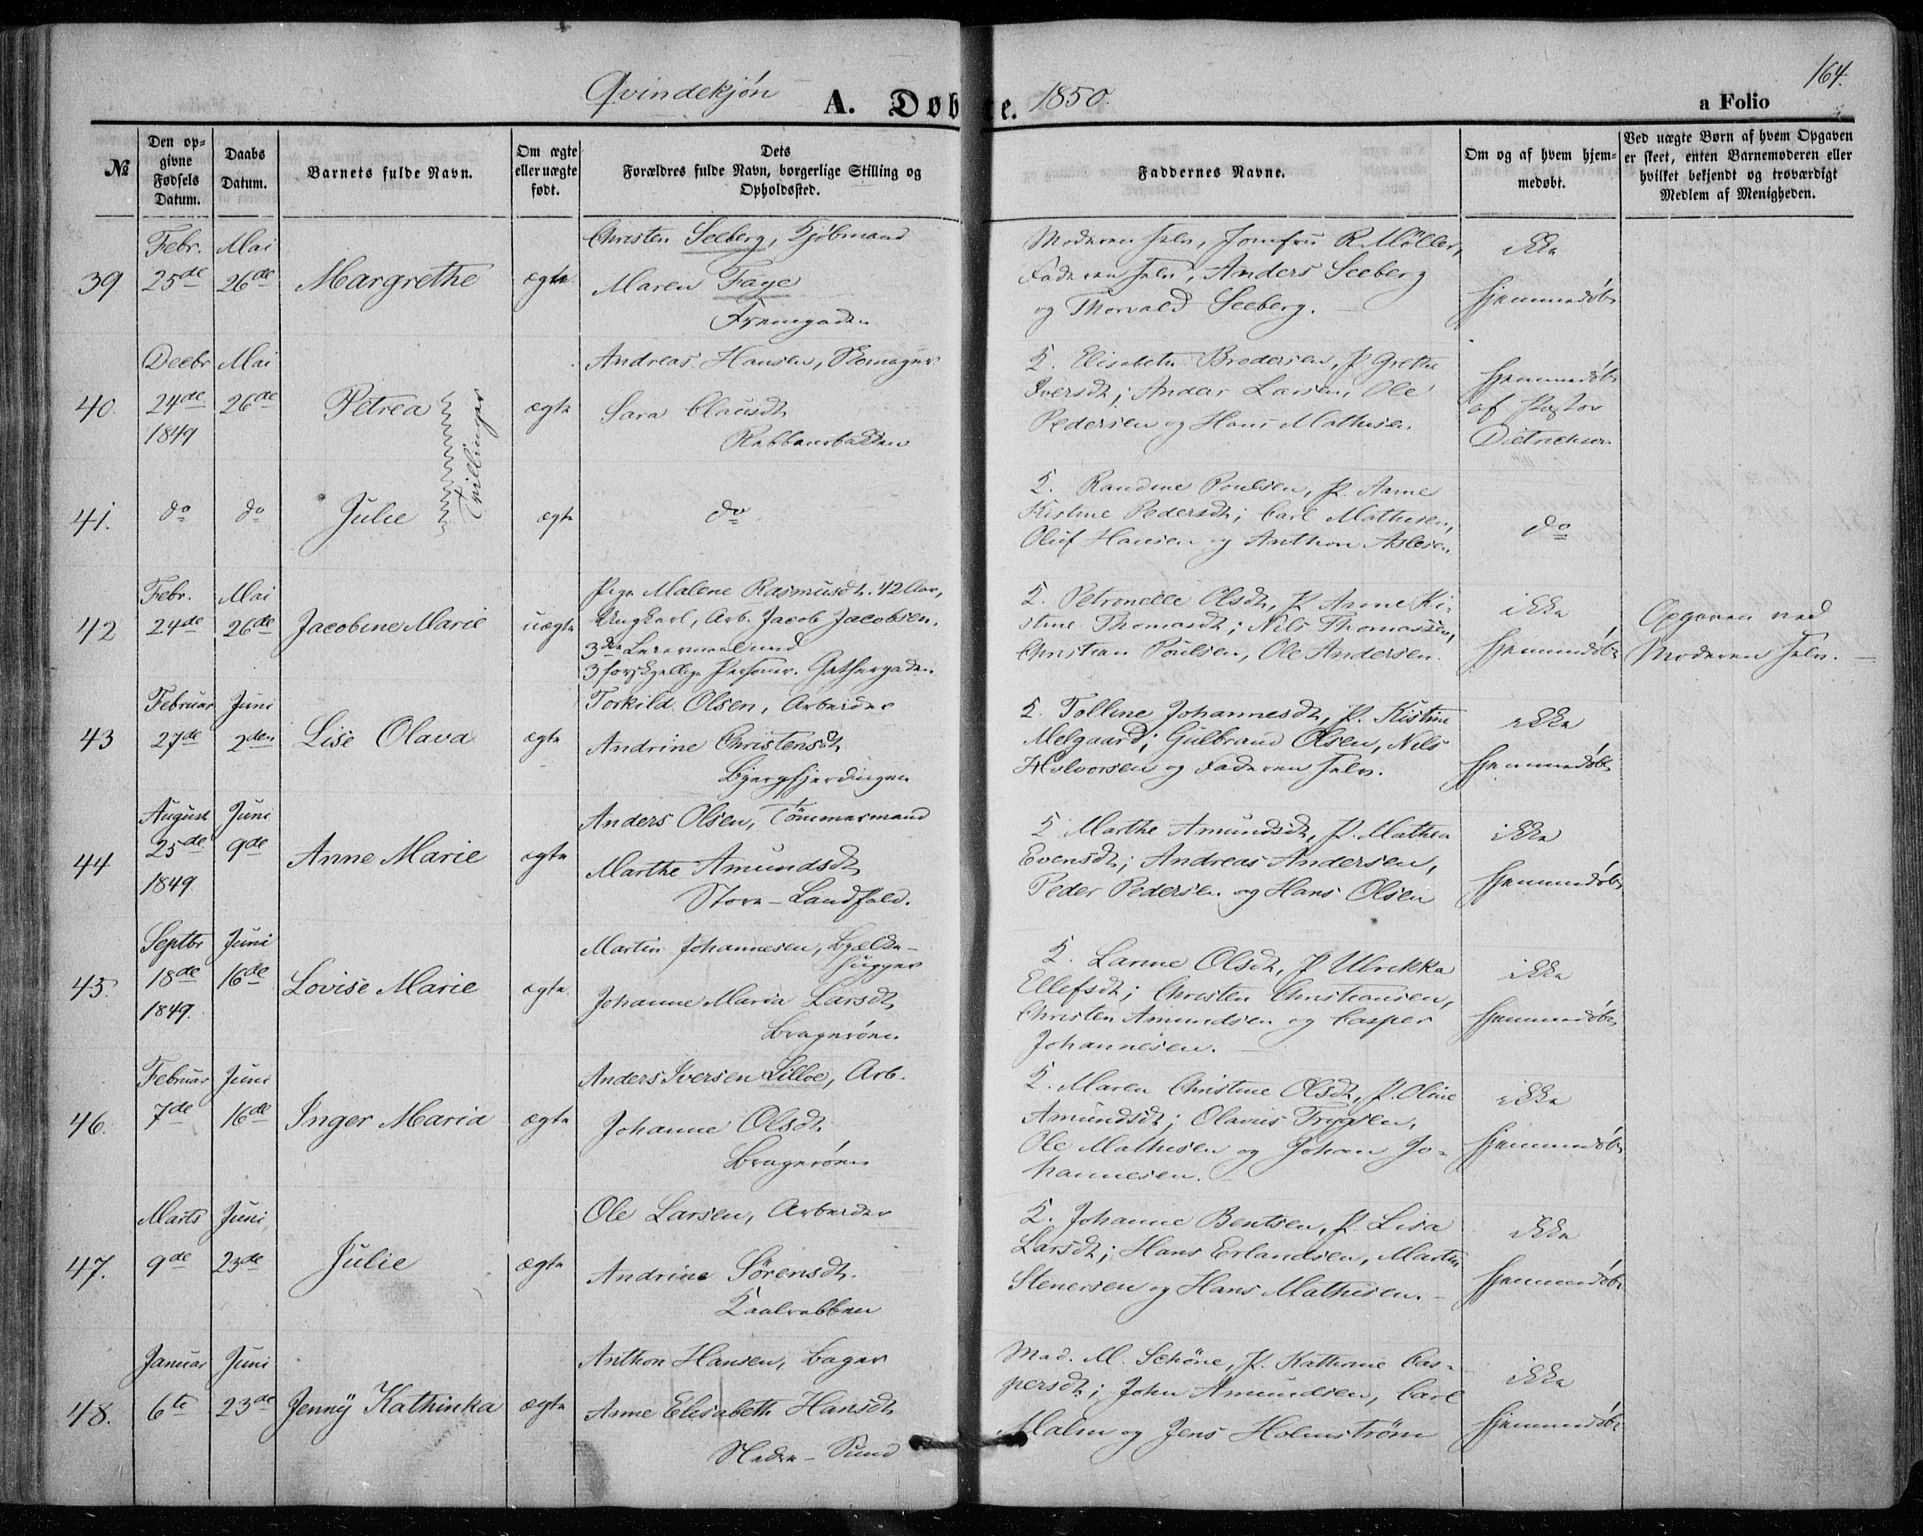 164.
Qvindekjøn A. Døbte. 1850. a Folio
№
Den opgivne Fødsels Datum.
Daabs Datum.
Barnets fulde Navn.
Om ægte eller uægte født.
Dets Forældres fulde Navn, borgerlige Stilling og Opholdssted.
Faddernes Navne.
Om og af hvem hjemmedøbt.
Ved uægte Børn af hvem Opgaven er skeet, enten Barnemoderen eller hvilket bekjendt og troværdigt Medlem af Menigheden.
39
Febr. 25de
Mai 26de
Margrethe
ægte
Christen Seeberg, Kjøbmand
Maren Faye
Fremgaden
Moderen selv, Jomfru R. Möller,
Faderen selv, Anders Seeberg
og Thorvald Seeberg.
ikke
hjemmedøbt
40.
Decbr 24de 1849
Mai 26de
Petrea
Tvillinger
ægte
Andreas Hansen, Skomager
Sara Clausdt
Rabbensbakken
K. Elisabeth Brodersen, P. Grethe
Iversdt; Andar Larsen, Ole
Pedersen og Hans Mathisen.
hjemmedøbt
af Pastor
Dietrichson
41.
do
do
Julie
ægte
do
K. Randine Poulsen, P. Anne
Kistine Pedersdt; Carl Mathisen,
Oluf Hansen og Anthon Aslesen
do
42
Febr. 24de
Mai 26de
Jacobine Marie
uægte
Pige Malene Rasmusdt. 42 Aar,
Ungkarl, Arb. Jacob Jacobsen.
3die Leiermaal med
3 forskjellige Personer.
K. Petronelle Olsdt, P. Anne Ki-
stine Thomasdt; Nils Thomassen,
Christian Poulsen, Ole Andersen.
ikke
hjemmedøbt
Opgaven ved
Moderen selv.
43
Februar 27de
Juni 2den
Lise Olava
ægte
Torkild Olsen, Arbeider
Andrine Christensdt
Bjergfjerdingen
K. Tolline Johannesdt, P. Kistine
Melgaard; Gulbrand Olsen, Nils
Halvorsen og Faderen selv.
ikke
hjemmedøbt
44
August 25de 1849
Juni 9de
Anne Marie
ægte
Anders Olsen, Tömmermand
Marthe Amundsdt
Store-Landfald.
K Marthe Amundsdt, P. Mathea
Evensdt; Andreas Andersen,
Peder Pedersen og Hans Olsen
ikke
hjemmedøbt
45.
Septbr 18de 1849.
Juni 16de
Lovise Marie
ægte.
Martin Johannesen, Bjælke-
hugger
Johanne Maria Larsdt
Bragerøen
K. Larine Olsdt, P Ulrikka
Ellefsdt; Christen Christiansen,
Christen Amundsen og Casper
Johannesen.
ikke
hjemmedøbt
46.
Februar 7de
Juni 16de
Inger Maria
ægte
Anders Iversen Lilloe, Arb.
Johanne Olsdt
Bragerøen
K. Maren Christine Olsdt, P. Oline
Amundsdt; Olavus Trygsen,
Ole Mathisen og Johan Jo-
hannesen.
ikke
hjemmedøbt
47.
Marts 9de
Juni 23de
Julie
ægte
Ole Larsen, Arbeider
Andrine Sörensdt.
Kaalrabben
K. Johanne Bentsen, P. Lisa
Larsdt; Hans Erlandsen, Martin
Stenersen og Hans Mathisen.
ikke
hjemmedøbt
48.
Januar 6te
Juni 23de
Jenny Kathinka
ægte
Anthon Hansen, Bager
Anne Elisabeth Hansdt
Nedre-Sund
Mad. M. Schöne, P. Kathrine Cas-
persdt; John Amundsen, Carl
Malm og Jens Holmström
ikke
hjemmedøbt